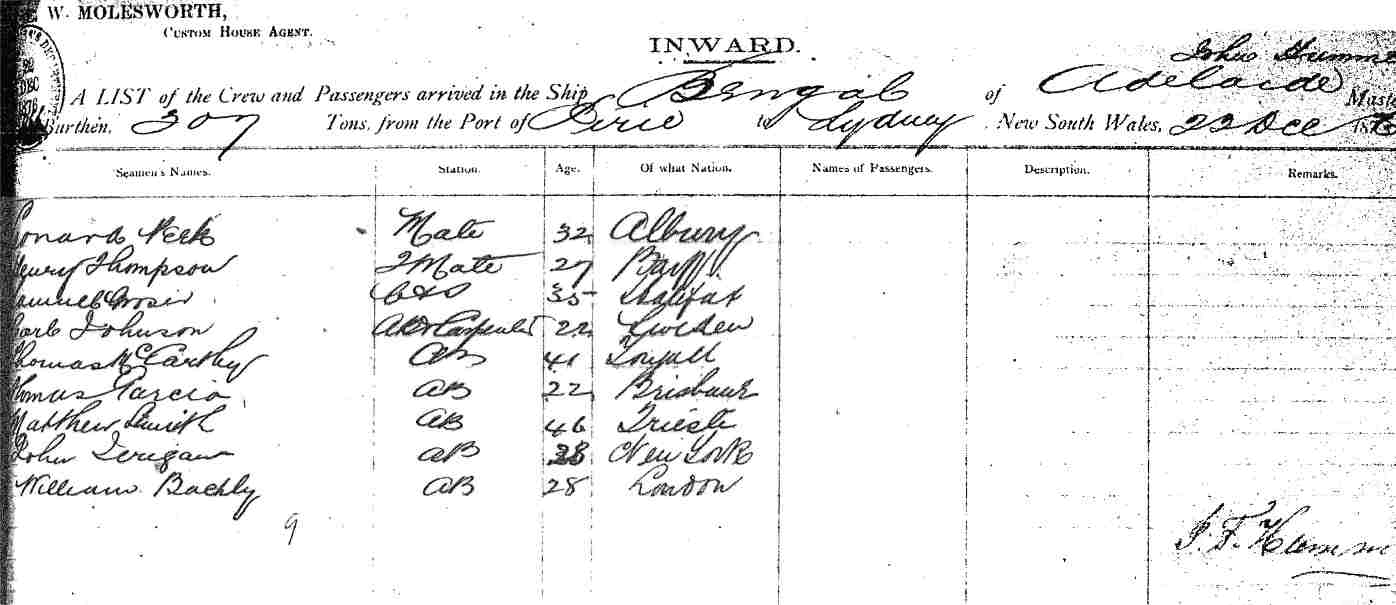 W. MOLESWORTH,
CUSTOM HOUSE AGENT.
INWARD.
John
A LIST of the Crew and Passengers arrived in the Ship Bengal of Adelaide Mast
Burthen, 307 Tons, from the Port of Pirie to Sydney, New South Wales, 22 Dec 187
Seamen's Names. Station. Age. Of what Nation. Names of Passengers. Description. Remarks.
onard Peek Mate 32 Albury
Henry Thompson 2 Mate 27
amuel C&S 35 Halifax
Carl Johnson AB & Carpenter 22 Sweden
Thomas McCarthy AB 41
Thomas Garcia AB 22 Brisbane
Matthew Smith AB 46 Trieste
John AB 28 New York
William Bachly AB 28 London
9
J. F. Hamm